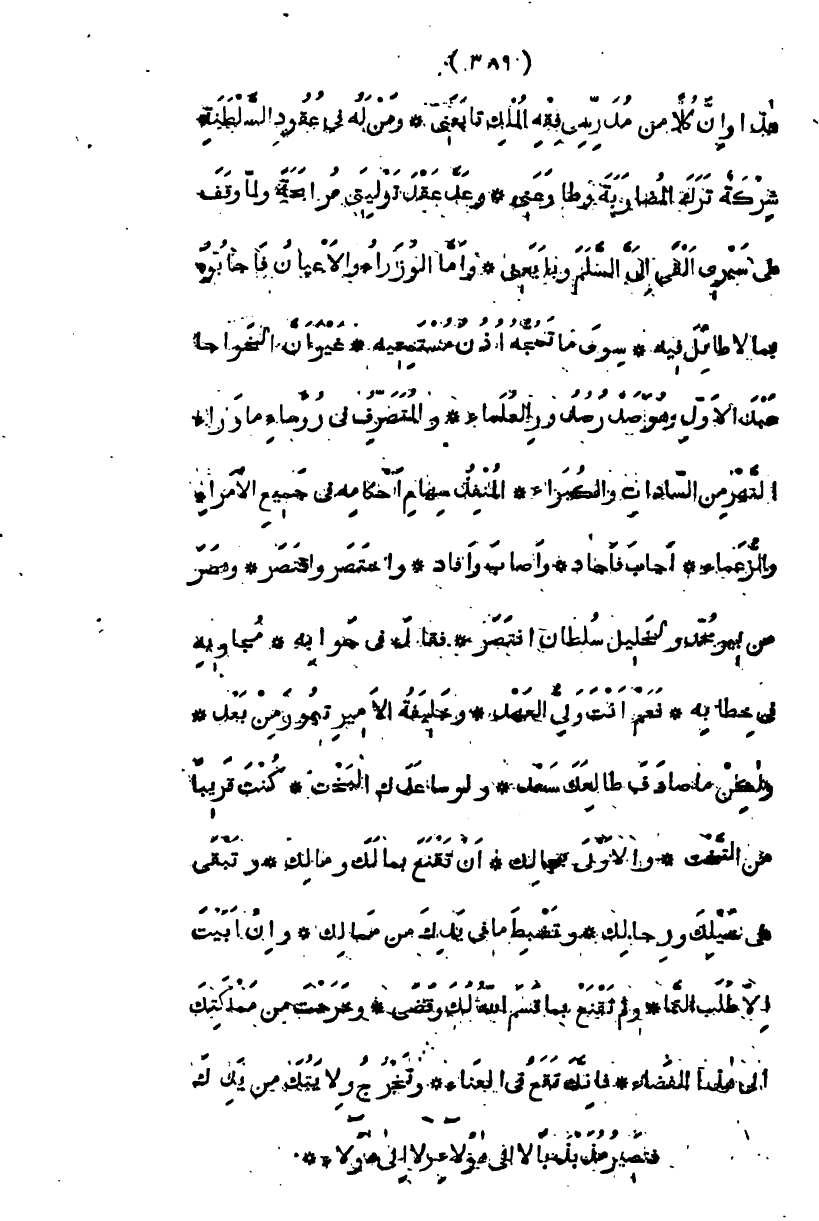 (٣٨٩)
هذا وانَّ كُلًّا من مُدَرِّسى فِقْهِ المُلْكِ تابَعَنِى * ومَنْ لَهُ فى عُقُودِ السَّلْطَنَةِ
شِرْكَةٌ تَرَكَ المُضارَبَةَ وطاوَعَنِى * وعَدَّ عَقْدَ تَوْلِيَتِى مُرابَحَةً ولمّا وَقَفَ
على اَلْقَى اِلَىَّ السَّلَمَ وبايَعَنِى * واَمَّا الوُزَراءُ والاَعْيانُ فَاَجابُوهُ
بما لا طائِلَ فيه * سِوَى ما تَمُجُّهُ اُذُنُ مُسْتَمِعِيه * غَيْرَ اَنَّ الخَواجا
عَبْدَ الاَوَّلِ وهُوَ صَدْرُ صُدُورِ العُلَماءِ * والمُتَصَرِّفُ فى رُؤَساءِ ما وَراءَ
النَّهْرِ من السّاداتِ والكُبَراءِ * المُنْفِذُ سِهامَ اَحْكامِه فى جَمِيعِ الاُمَراءِ
والزُّعَماءِ * اَجابَ فَاَجاد * واَصابَ واَفاد * واخْتَصَر واقْتَصَر *
من ولِخَلِيل سُلْطان انْتَصَر * فقال له فى جَوابِه * مُجاوِبِه
فى خِطابِه * نَعَمْ اَنْتَ وَلِىُّ العَهْدِ * وخَلِيفَةُ الاَمِيرِ تيمُورَ مِنْ بَعْد *
ولٰكِنْ ما صادَفَ طالِعَكَ سَعْد * ولو ساعَدَك البَخْت * كُنْتَ قَرِيباً
من التَّخْت * والاَوْلَى بحالِك * اَنْ تَقْنَعَ بمالَكَ ومالِك * وتَبْقَى
على خَيْلِكَ ورِجالِك * وتَضْبِطَ ما فى يَدِكَ من مَمالِك * وانْ اَبَيْتَ
اِلّا طَلَب النَّماء * ولم تَقْنَعْ بما قَسَمَ اللّٰهُ لَكَ وقَضَى * وخَرَجْتَ من مَمْلَكَتِكَ
الى هٰذا الفَضاء * فاِنَّكَ تَقَعُ فى العَناء * وتَخْرُجُ وِلايَتُكَ من يَدِكَ
فتَصِيرُ مُذَبْذَباً لا الى هٰؤُلاءِ ولا اِلى هٰؤُلاءِ *